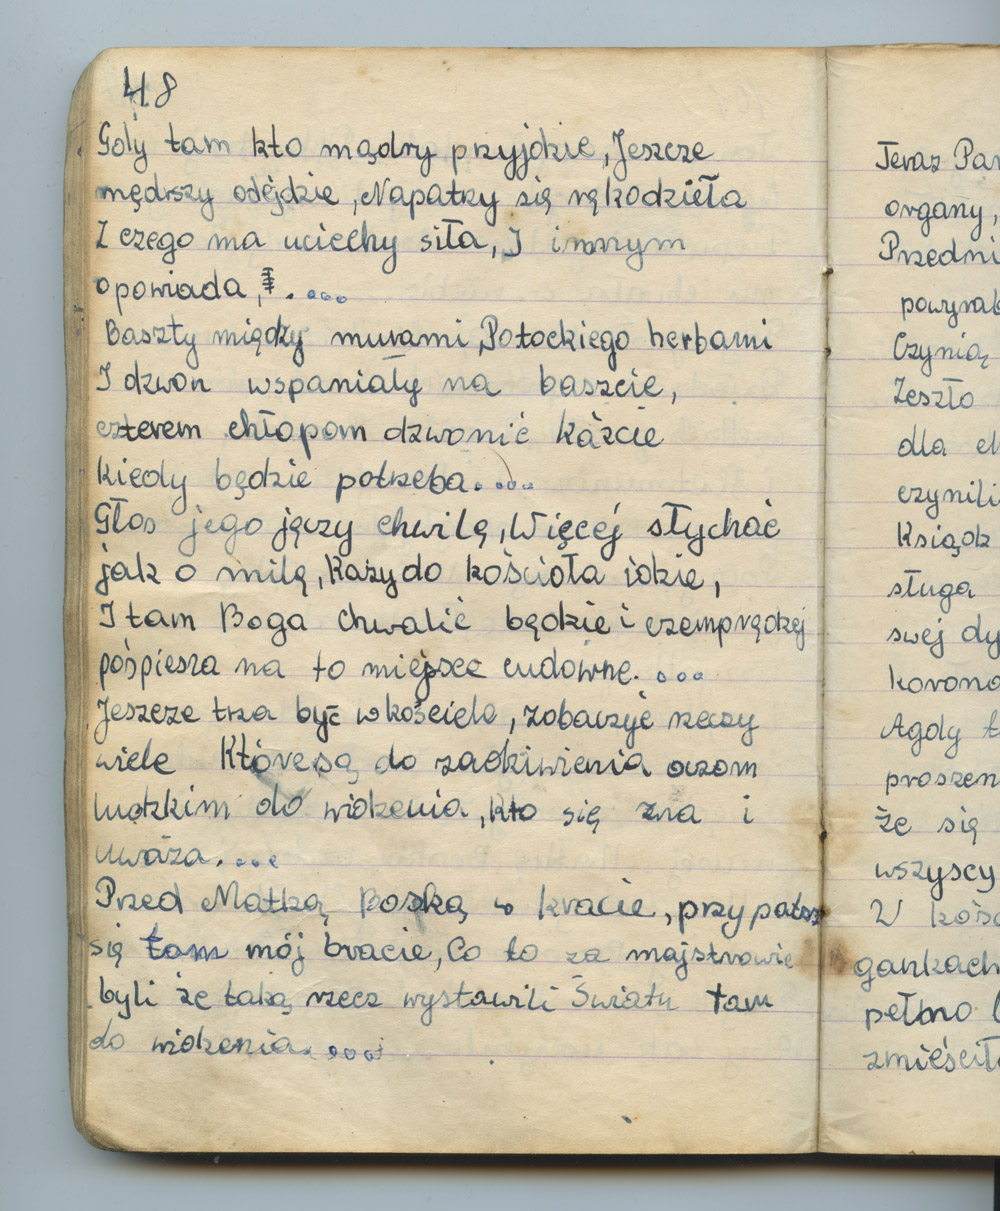 48
Gdy tam kto mądry przyjdzie, Jeszcze
mędrszy odejdzie, Napatrzy się rękodzieła
Z czego ma uciechy siła, I innym
opowiada, . ....
Baszty między murami, Potockiego herbami
I dzwon wspaniały na baszcie,
czterem chłopom dzwonić każcie
kiedy będzie potrzeba....
Głos jego jęczy chwilę, Więcej słychać
jak o milę, Każy do kościoła idzie,
I tam Boga chwalić będzie i czemprędzej
pośpiesza na to miejsce cudowne. ...
Jeszcze trza być w kościele, zobaczyć rzeczy
wiele Które są do zadziwienia oczom
ludzkim do widzenia, kto się zna i
uważa....
Przed Matką Boską w kracie, przypatrz
się tam mój bracie, Co to za majstrowie
byli że taką rzecz wystawili Światu tam
do widzenia.....
Teraz Pan
organy,
Przedni
powyrab
Czynią
Zeszło
dla
czynili
Ksiądz
sługa
swej dy
korono
Agdy
proszen
że się
wszyscy
W kośc
gankach
pełno
zmieściło